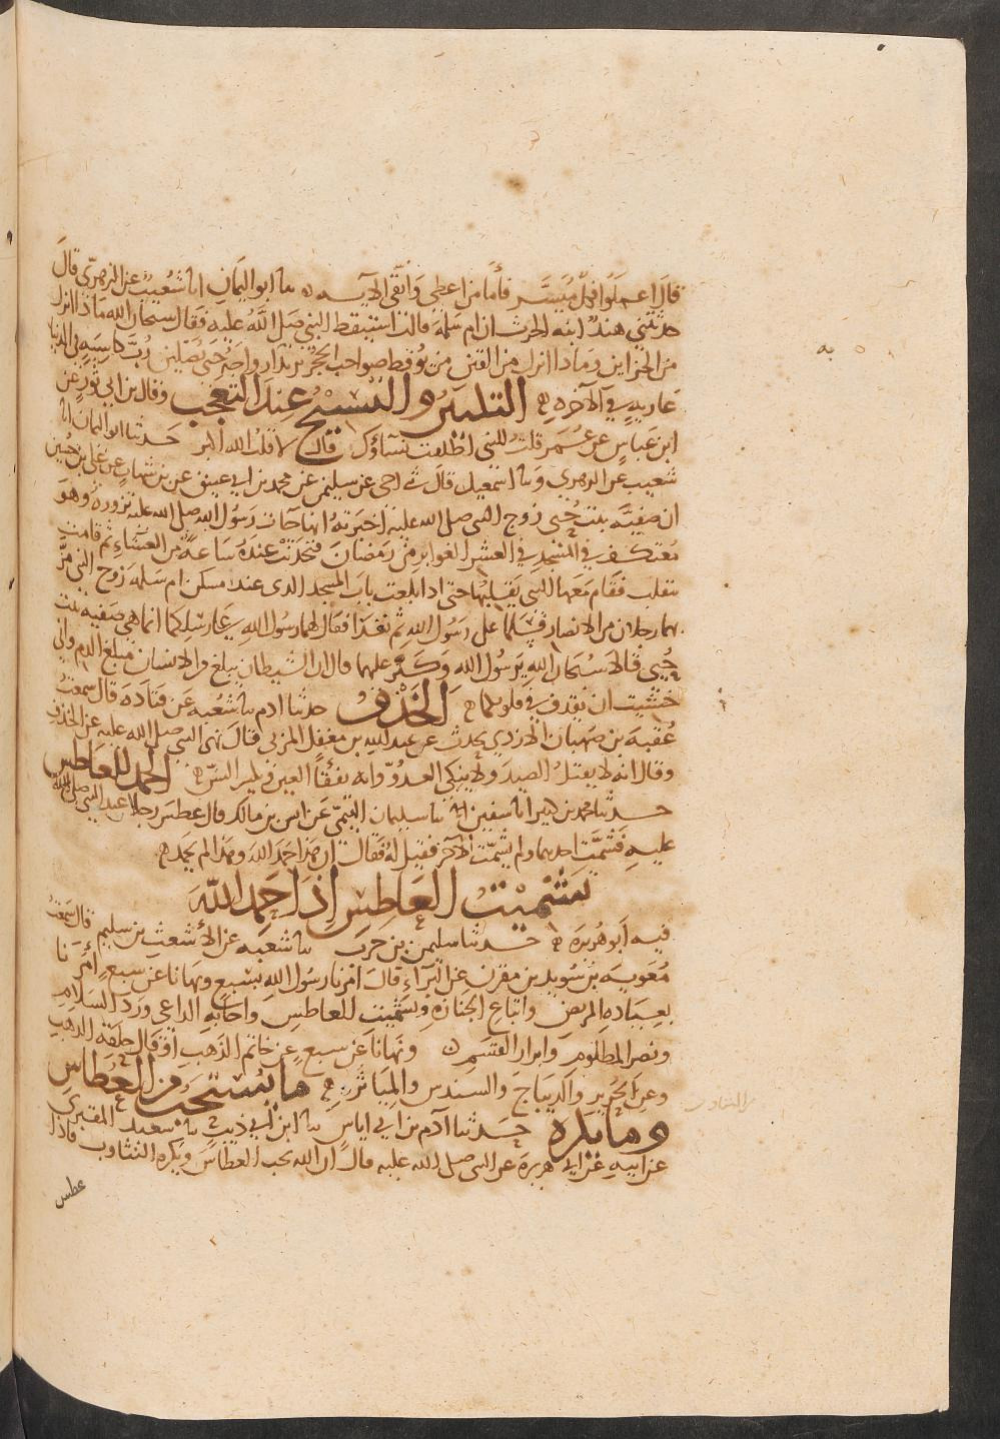 قال اعملوا فكل ميسر فأما من اعطى واتقى الآيه ه نا ابو اليمان انا شعيب عن الزهري قال
حدثتني هند ابنه الحرث ان ام سلمة قالت استيقظ النبي صلى الله عليه فقال سبحان الله ماذا انزل
من الخزاين وماذا انزل من الفتن من يوقظ صواحب الحجر يريد ازواجه حتى يصلين رب كاسيه في الدنيا
عاريه في الآخره ه التكبير والتسبيح عند التعجب وقال بن ابي ثور عن
ابن عباس عن عمر قلت للنبي اطلقت نساؤك قال لا قلت الله اكبر حدثنا ابو اليمان انا
شعيب عن الزهري ونا اسمعيل قال نا اخي عن سليمن عن محمد بن ابي عتيق عن بن شهاب عن علي بن حسين
ان صفيه بنت حيي زوج النبي صلى الله عليه اخبرته انها جات رسول الله صلى الله عليه تزوره وهو
معتكف في المسجد في العشر الغوابر من رمضان فتحدثت عنده ساعة من العشاء ثم قامت
تنقلب فقام معها النبي يقلبها حتى اذا بلغت باب المسجد الذى عند مسكن ام سلمه زوج النبي مر
بهما رجلان من الانصار فسلما على رسول الله ثم نفذا فقال لهما رسول الله على رسلكما انما هي صفيه بنت
حيي قالا سبحان الله يرسول الله وكبر عليهما قال ان الشيطان يبلغ من الانسان مبلغ الدم واني
خشيت ان يقذف في قلوبكما ه الخذف حدثنا ادم نا شعبه عن قتادة قال سمعت
عقبة بن صهبان الازدي يحدث عن عبد الله بن مغفل المزني قال نهى النبي صلى الله عليه عن الخذف
وقال انه لا يقتل الصيد ولا ينكي العدو وانه يفقأ العين ويكسر السن ه الحمد للعاطس
حدثنا محمد بن كثير انا سفين نا سليمان التيمي عن انس بن مالك قال عطس رجلان عند النبي صلى الله
عليه فشمت احدهما ولم يشمت الآخر فقيل له فقال ان هذا حمد الله وهذا لم يحمد ه
تشميت العاطس اذا حمد الله
فيه ابو هريرة ه حدثنا سليمن بن حرب نا شعبه عن الأشعث بن سليم قال سمعت
معويه بن سويد بن مقرن عن البرآء قال امرنا رسول الله بسبع ونهانا عن سبع امرنا
بعيادة المريض واتباع الجنازه وتشميت العاطس واجابه الداعى ورد السلام
ونصر المظلوم وابرار القسم ه ونهانا عن سبع عن خاتم الذهب او قال حلقة الذهب
وعن الحرير والديباج والسندس والمياثر ه ما يستحب من العطاس
وما يكره حدثنا آدم بن ابي اياس نا ابن ابي ذيب نا سعيد المقبري
عن ابيه عن ابي هريرة عن النبي صلى الله عليه قال ان الله يحب العطاس ويكره التثاوب فاذا
عطس